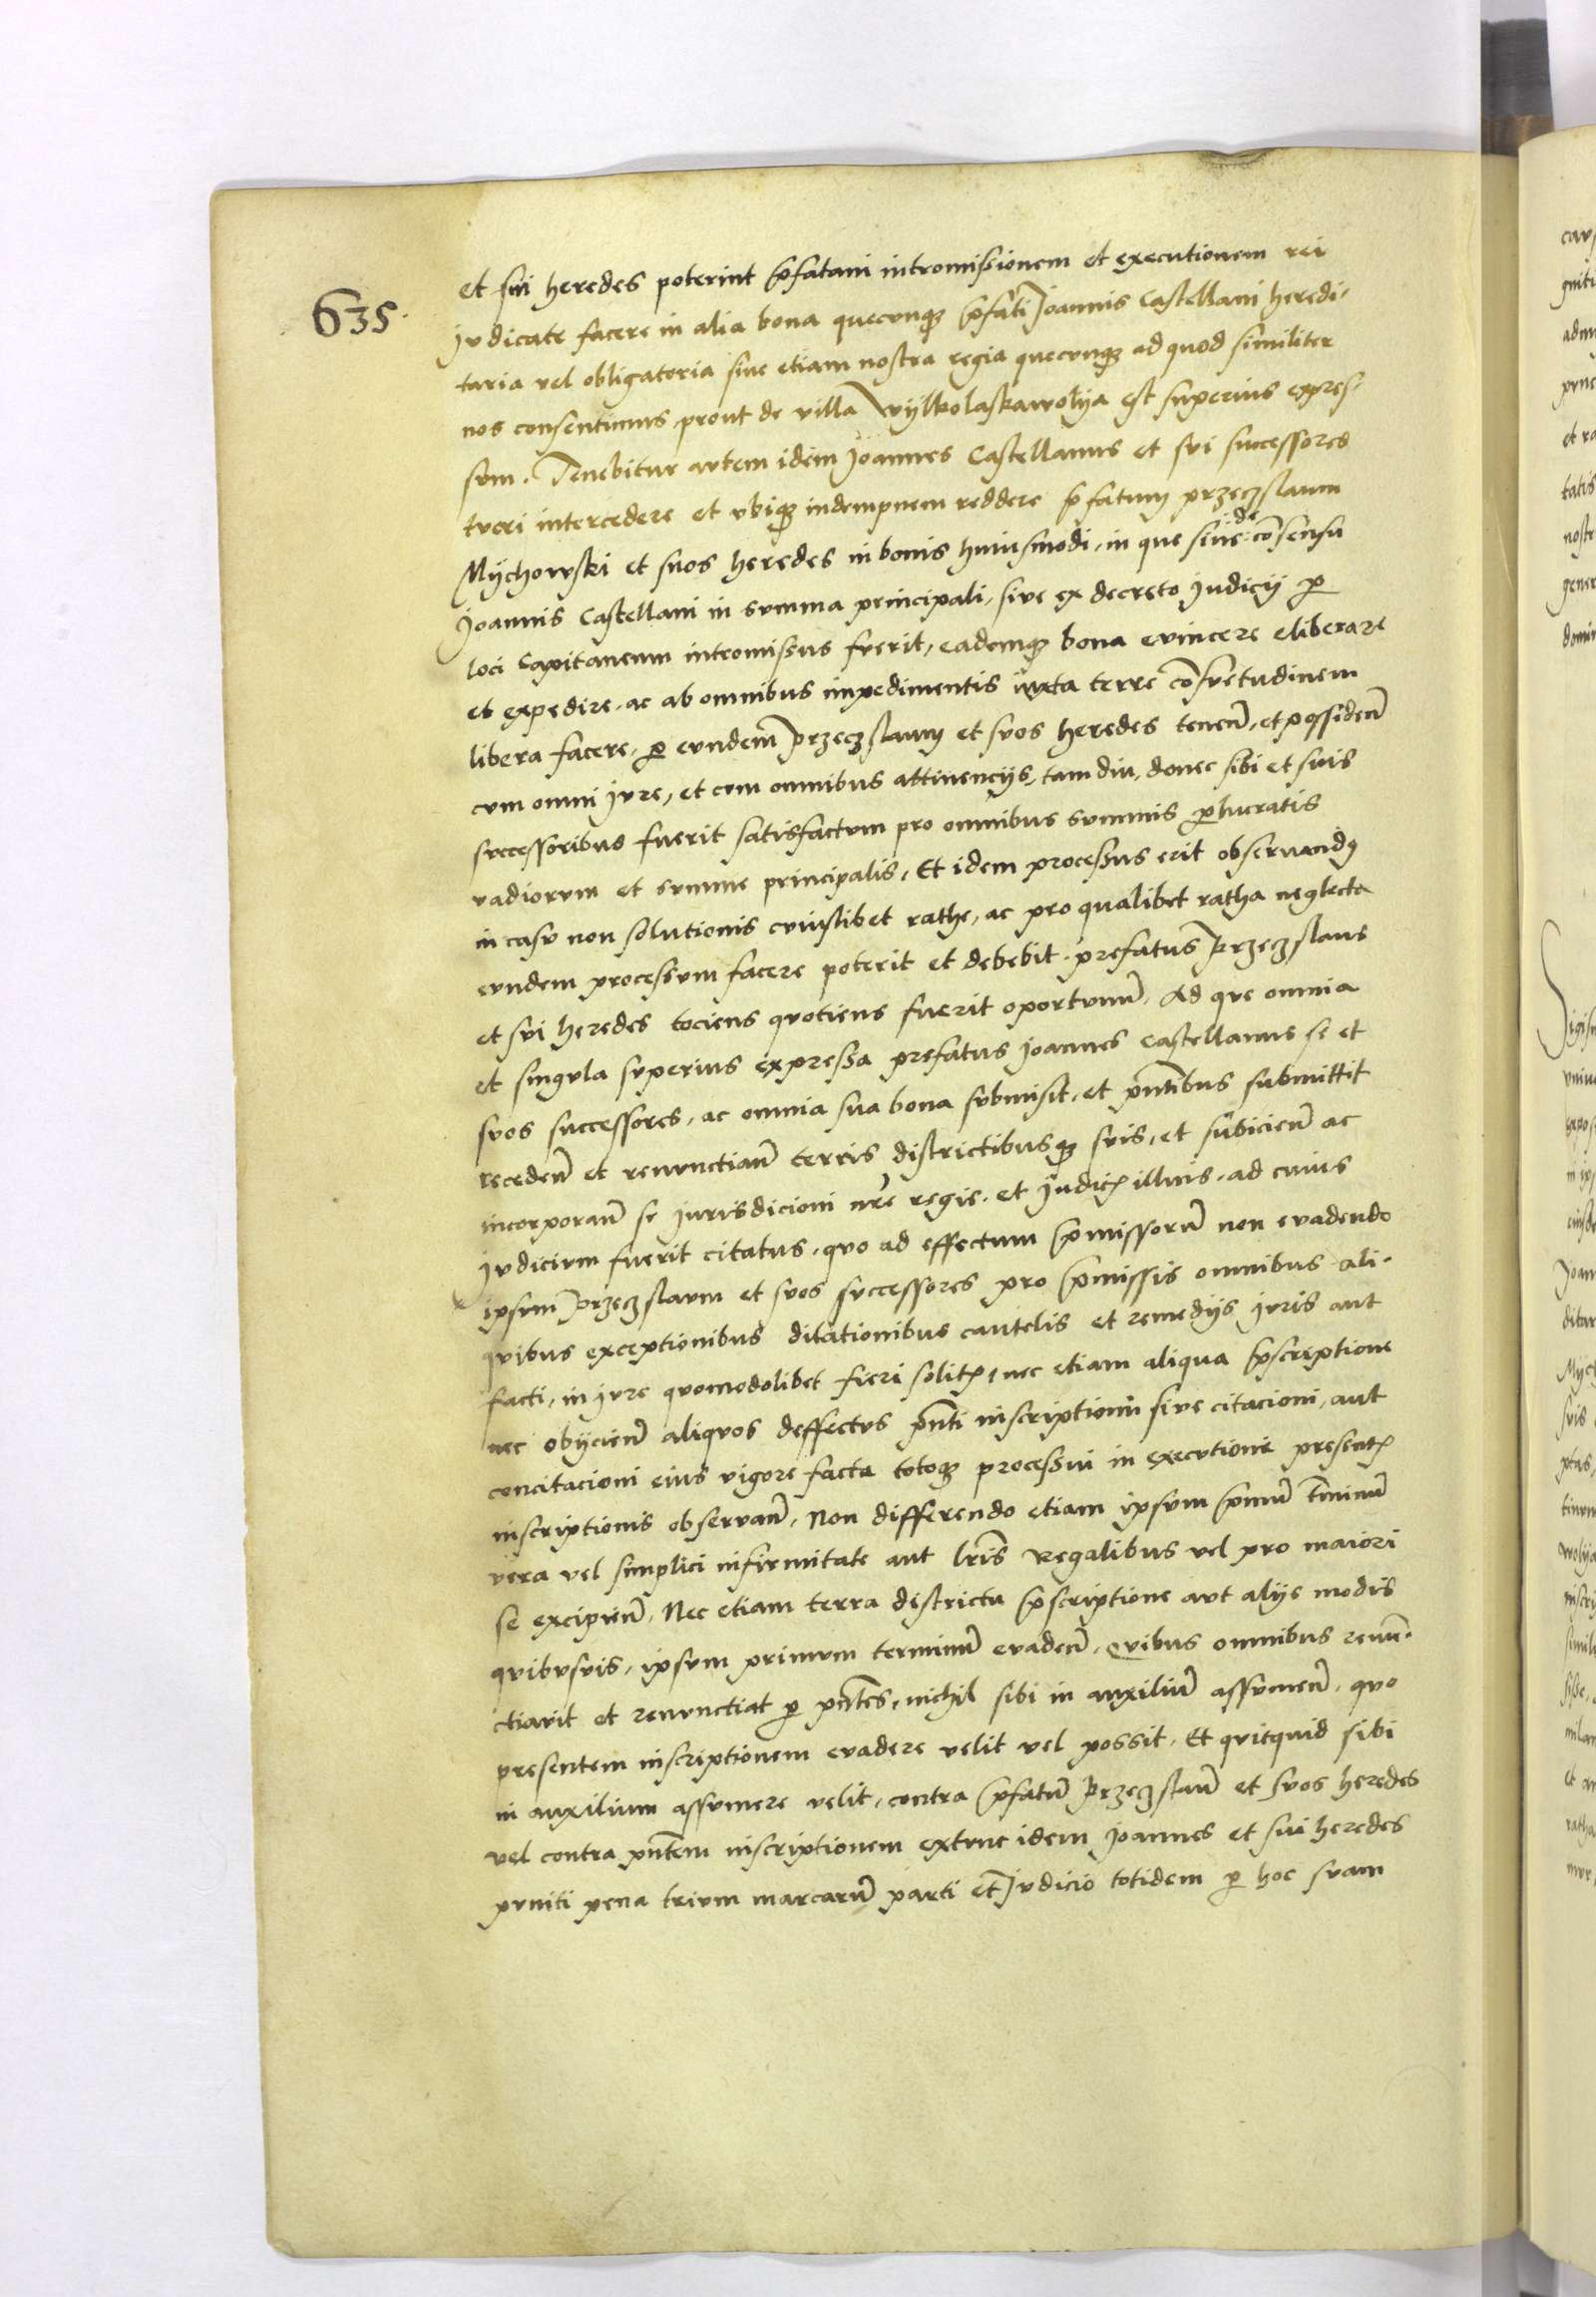 635.
et sui heredes poterint p̄fatam intromissionem et executionem rei
judicate facere in alia bona quecunq₃ p̄fati Joannis Castellani heredi-
taria vel obligatoria sive etiam nostra regia quecunq₃ ad quod similiter
nos consentimus, prout de villa Wylkolaskawolya est superius expres-
sum. Tenebitur autem idem Joannes Castellanus et sui successores
tueri intercedere et ubiq₃ indempnem reddere p̄fatum przeczslaum
Mychowski et suos heredes in bonis huiusmodi, in que sive de cōsensu
Joannis Castellani in summa principali, sive ex decreto judicij p̲
loci Capitaneum intromissus fuerit, eademq₃ bona evincere eliberare
et expedire, ac ab omnibus impedimentis iuxta terre cōsuetudinem
libera facere, p̲ eundem przeczslaum et suos heredes tenen̄, et possiden̄
cum omni jure, et cum omnibus attinencijs, tam diu, donec sibi et suis
successoribus fuerit satisfactum pro omnibus summis p̲lucratis
vadiorum et summe principalis, Et idem processus erit observandꝰ
in casu non solutionis cuiuslibet rathe, ac pro qualibet ratha neglecta
eundem processum facere poterit et debebit prefatus przeczslaus
et sui heredes tociens quotiens fuerit oportunū. Ad que omnia
et singula superius expressa prefatus Joannes Castellanus se et
suos successores, ac omnia sua bona submisit, et pn̄tibus submittit
receden̄ et renunctian̄ terris districtibusq₃ suis, et subicien̄ ac
incorporan̄ se jurisdicioni nr̄e regie, et judicꝭ illius, ad cuius
judicium fuerit citatus, quo ad effectum p̄missorū non evadendo
ipsum przeczslaum et suos successores pro p̄missis omnibus ali-
quibus exceptionibus dilationibus cautelis et remedijs juris aut
facti, in jure quomodolibet fieri solitꝭ, nec etiam aliqua p̄scriptione
nec obijcien̄ aliquos deffectus pn̄ti inscriptioni sive citacioni, aut
concitacioni eius vigore facta totoq₃ processui in executione presentꝭ
inscriptionis observan̄, Non differendo etiam ipsum p̄mū t̄minū
vera vel simplici infirmitate aut lr̄is Regalibus vel pro maiori
se excipien̄, Nec etiam terra districtu p̄scriptione aut alijs modis
quibusvis, ipsum primum terminū evaden̄, Quibus omnibus renun-
ctiavit et renunctiat p̲ pn̄tes, nichil sibi in auxiliū assumen̄, quo
presentem inscriptionem evadere velit vel possit, Et quitquid sibi
in auxilium assumere velit, contra p̄fatū przeczslaū et suos heredes
vel contra pn̄tem inscriptionem extunc idem Joannes et sui heredes
puniti pena trium marcarū parti et judicio totidem p̲ hoc suam